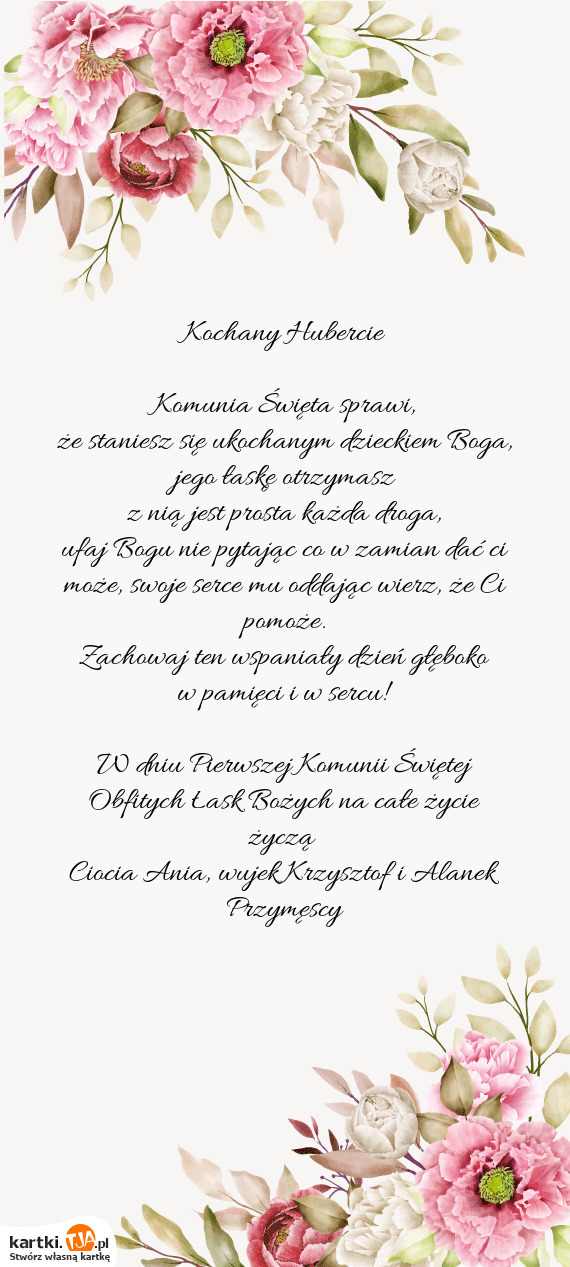 Kochany Hubercie
Komunia Święta sprawi,
że staniesz się ukochanym dzieckiem Boga,
jego łaskę otrzymasz
z nią jest prosta każda droga,
ufaj Bogu nie pytając co w zamian dać ci
może, swoje serce mu oddając wierz, że Ci
pomoże.
Zachowaj ten wspaniały dzień głęboko
w pamięci i w sercu!
W dniu Pierwszej Komunii Świętej
Obfitych Łask Bożych na całe życie
życzą
Ciocia Ania, wujek Krzysztof i Alanek
Przymęscy
kartki.TJA.pl
Stwórz własną kartkę